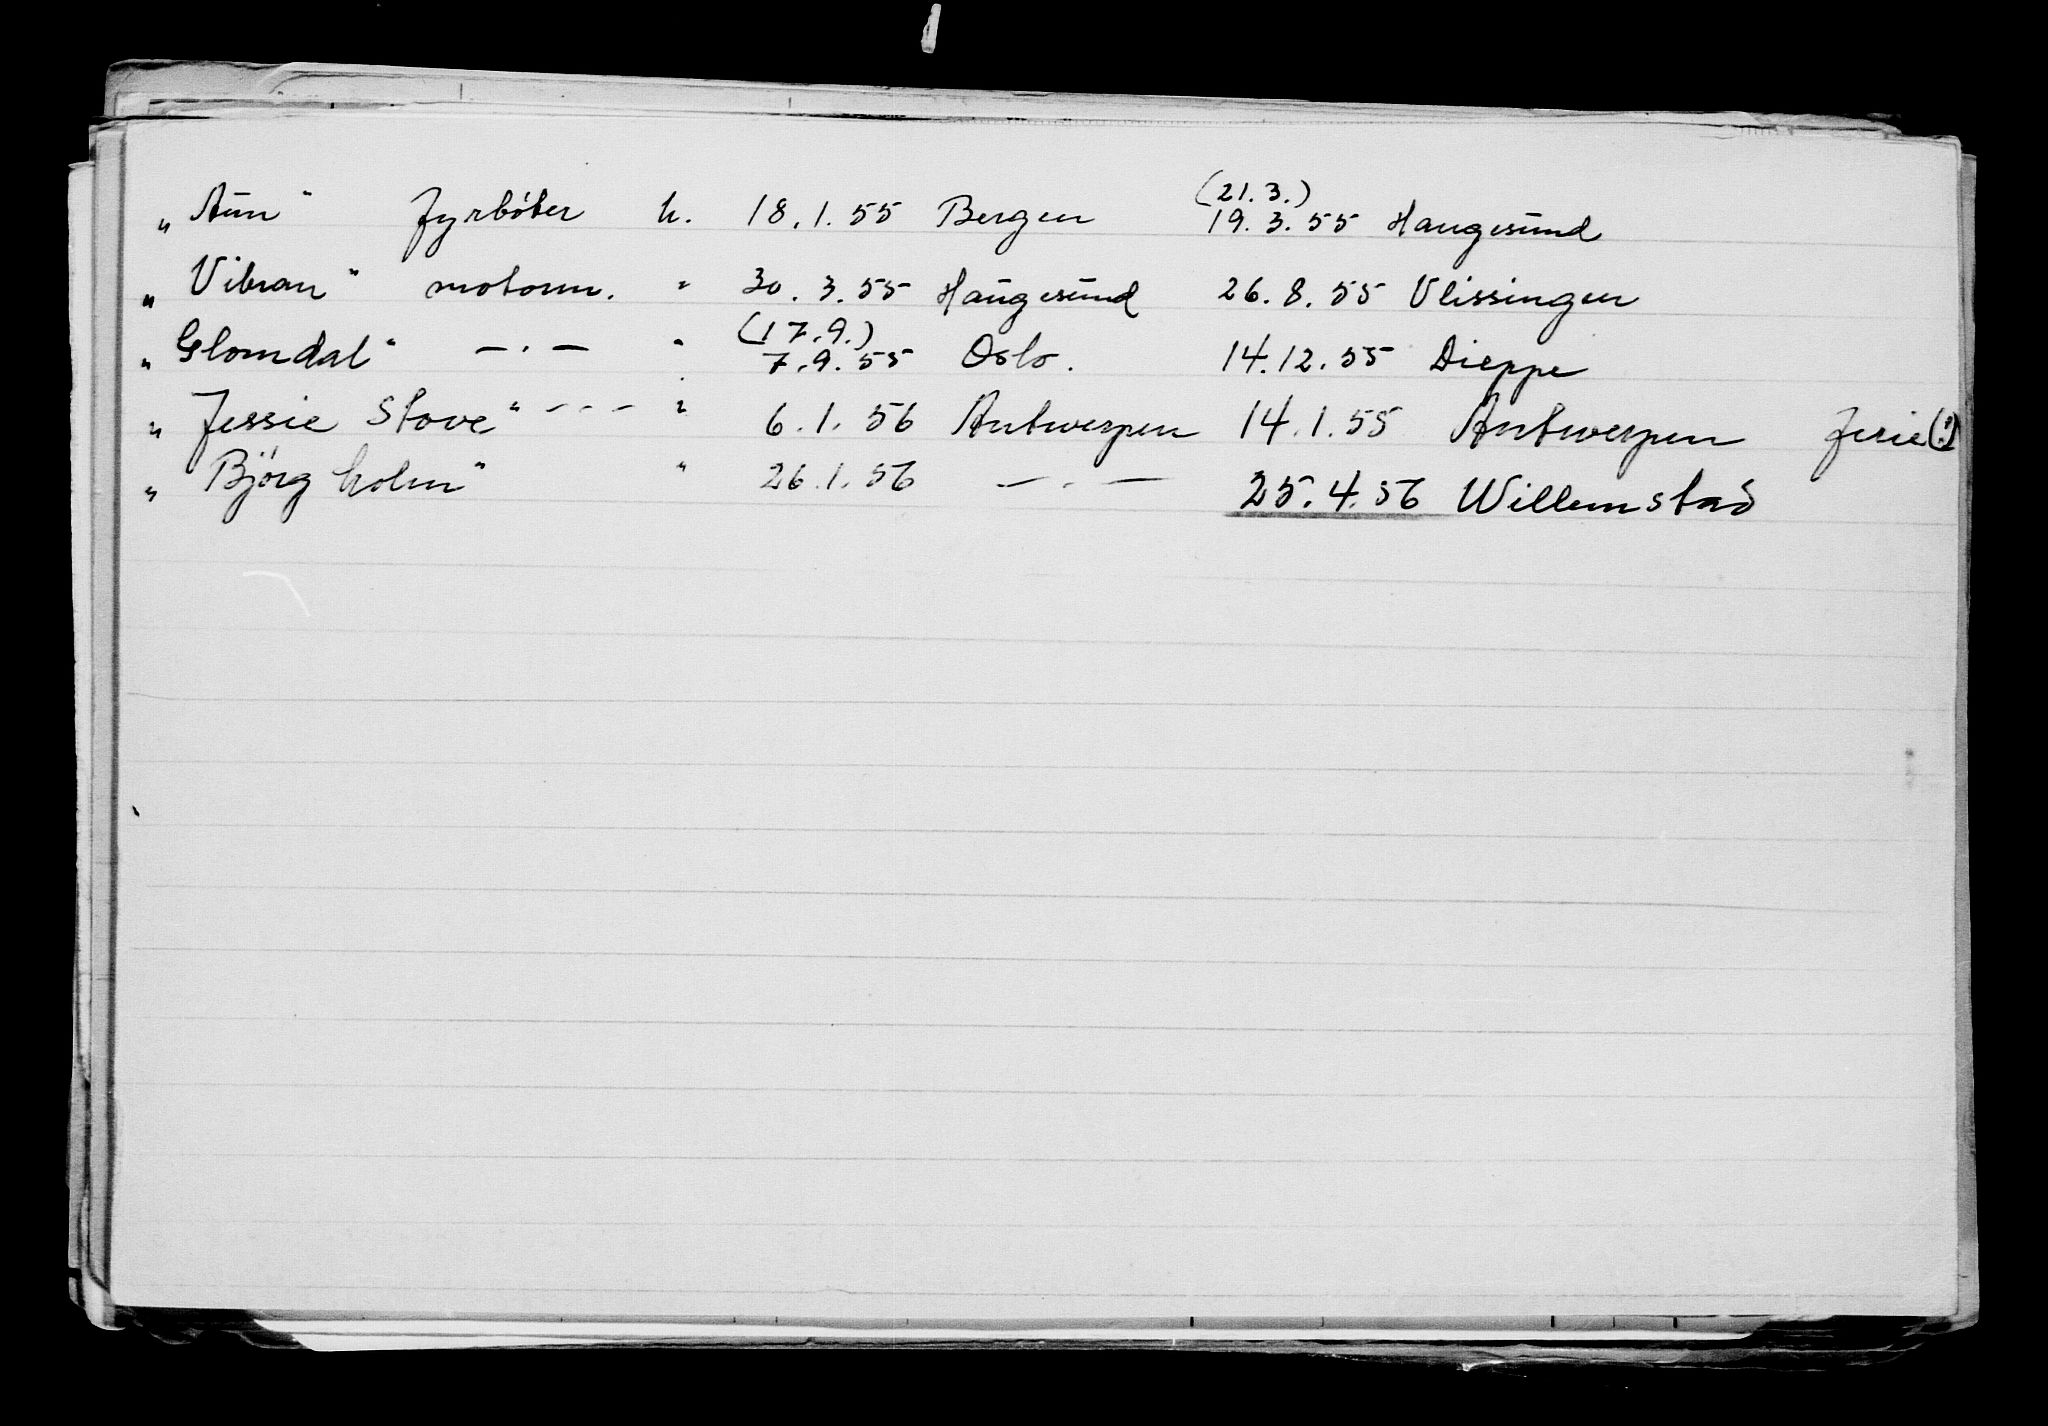 „Aun" fyrböter h. 18.1.55 Bergen (21.3.) 19.3.55 Haugesund
„Vibran" motorm. " 30.3.55 Haugesund 26.8.55 Vlissingen
„Glomdal" — . — " (17.9.) 7.9.55 Oslo. 14.12.55 Dieppe
„Jessie Stove" - - - " 6.1.56 Antwerpen 14.1.55 Antwerpen ferie (?)
„Björgholm" " 26.1.56 — . — 25.4.56 Willemstad